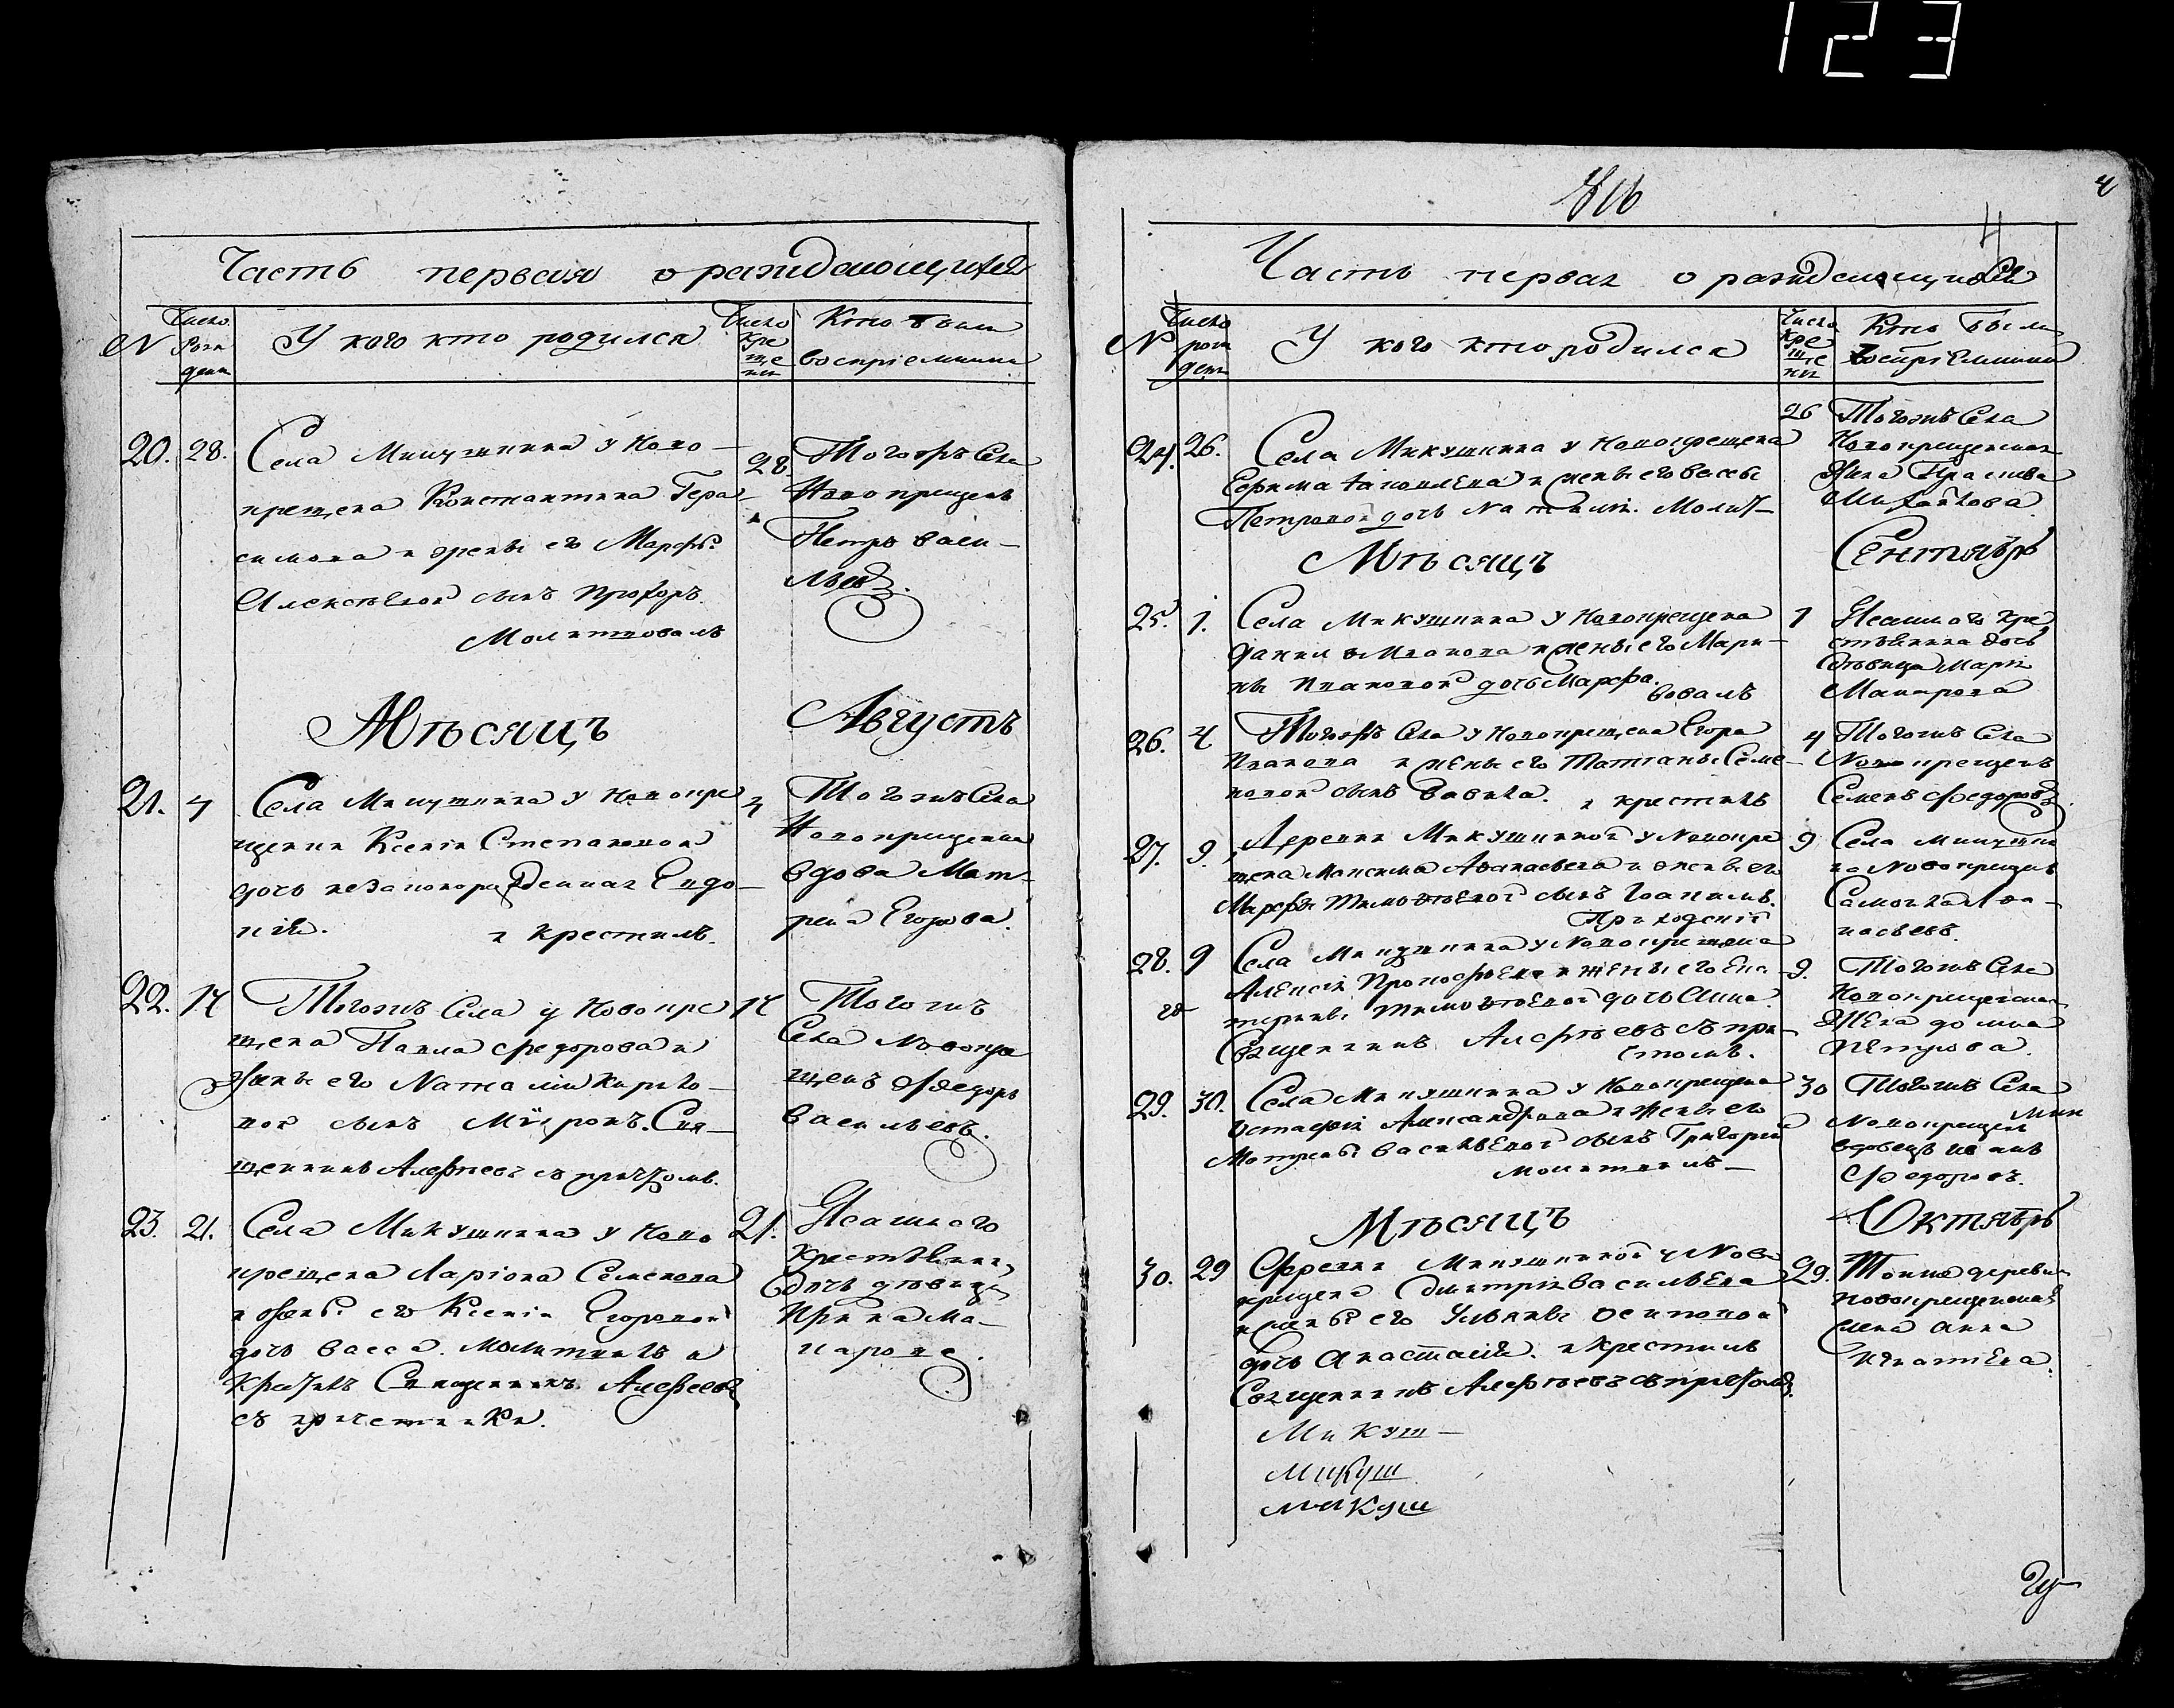 123
4
Часть первая о раждающихся
N
Число рождения
У кого кто родился
Число крещения
Кто были восприемники
20. 28.
Села Микушкина у ново-
крещена Константина Гера-
симова и жены его Марфы
Алексѣевой сынъ Прохоръ.
Молитвовалъ
28.
Тогожъ Села
Новокрещенъ
Петръ Васи-
льевъ.
Мѣсяцъ Августъ
21. 4
Села Микушкина у новокре
щенки Ксеніи Степановой
дочь незаконорожденная Евдо-
кія. и крестилъ.
4
Тогожъ Села
Новокрещенка
вдова Мат-
рена Егорова.
22. 14
Тогожъ Села у новокре
щена Павла Федорова и
жены его Наталіи Кирило-
вой сынъ Миронъ. Свя-
щенникъ Алефѣевъ съ причтомъ.
14
Тогожъ
Села Новокре
щенъ Федоръ
Васильевъ.
23. 21.
Села Микушкина у Ново
крещена Ларіона Семенова
и жены его Ксеніи Егоровой
дочь Васса. Молитвилъ и
крестилъ Священникъ Алефѣевъ
съ причетники.
21.
Ясашнаго
крестьянина
дочь дѣвица
Ирина Ма-
карова.
Часть первая о раждающихся
N
Число рождения
У кого кто родился
Число крещения
Кто были восприемники
24. 26.
Села Микушкина у новокрещена
Ефима и жены его Вассы
Петровой дочь Наталия. Молит-
26
Тогожъ Села
Новокрещенская
жена Прасковья
Михайлова.
Мѣсяцъ Сентябрь
25. 1.
Села Микушкина у новокрещена
Данила Иванова и жены его Мари-
ны Ивановой дочь Марфа.
вовалъ
1
Ясашнаго кре
стьянина дочь
дѣвица Марья
26. 4
Тогожъ Села у новокрещена Егора
Иванова и жены его Татьяны Семе-
новой сынъ Вавила. и крестилъ
4
Тогожъ Села
Новокрещенъ
Семенъ Федоровъ.
27. 9.
Деревни Микушкиной у новокре
щена Максима Афанасьева и жены его
Марфы Тимофѣевой сынъ Іоакимъ.
Приходскій
9
Села Микушки
на Новокрещенъ
насьевъ.
28. 9
Села Микушкина у новокрещена
Алексѣя Прокофьева и жены его Ека-
терины Тимофѣевой дочь Анна.
Священникъ Алефѣевъ съ при-
чтомъ.
9.
Тогожъ Села
Новокрещенская
жена Домна
Петрова.
29. 30.
Села Микушкина у новокрещена
Устафія Александрова и жены его
Матрены Васильевой сынъ Григорій
молитвилъ
30
Тогожъ Села
Новокрещенъ
вдовецъ Иванъ
Федоровъ.
Мѣсяцъ Октябрь
30. 29
Деревни Микушкиной у Ново
крещена Дмитрія Васильева
и жены его Ульяны Осиповой
дочь Анастасія. и крестилъ
Священникъ Алефѣевъ съ причтомъ.
29.
Тоиже деревни
новокрещенская
жена Анна
Игнатьева.
Микуш-
Микуш
Микуш